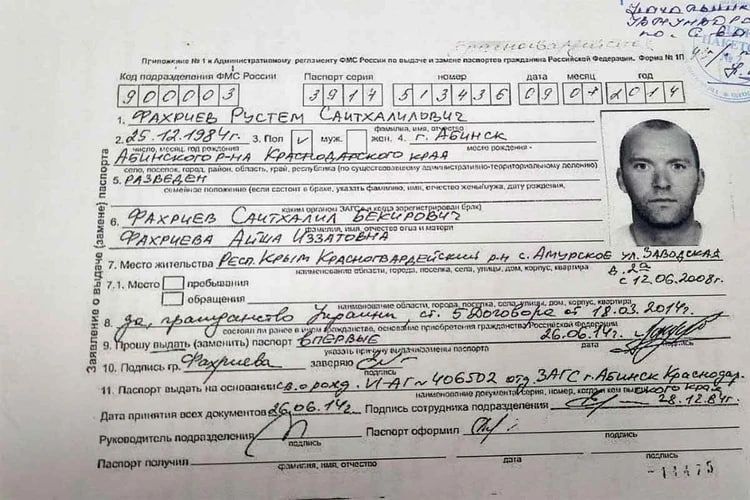 Начальнику
по
Красногвардейские
Приложение № 1 к Административному регламенту ФМС России по выдаче и замене паспортов гражданина Российской Федерации. Форма № 1П
Код подразделения ФМС России Паспорт серия номер дата месяц год
900003 3914 513436 09 07 2014
1. Фахриев Рустем Саитхалилович
фамилия, имя, отчество
2. 25.12.1984г. 3. Пол V муж. жен. 4. г. Абинск
число, месяц, год рождения место рождения -
Абинского р-на Краснодарского края
село, поселок, город, район, область, край, республика (по существовавшему административно-территориальному делению)
5. Разведен
семейное положение (если состоит в браке, указать фамилию, имя, отчество жены/мужа, дату рождения,
каким органом ЗАГСа и когда зарегистрирован брак)
6. Фахриев Саитхалил Бекирович
Фахриева Айша Иззатовна
фамилия, имя, отчество отца и матери
7. Место жительства Респ. Крым Красногвардейский р-н с. Амурское ул. Заводская
наименование области, города, поселка, села, улицы, дом, корпус, квартира
с 12.06.2008г.
7.1. Место пребывания
обращения
наименование области, города, поселка, села, улицы, дом, корпус, квартира
8. да, гражданство Украины, ст. 5 Договора от 18.03.2014г.
состояли ли ранее в ином гражданстве, основание приобретения гражданства Российской Федерации
9. Прошу выдать (заменить) паспорт впервые 26.06.14г.
указать причину выдачи/замены паспорта подпись
10. Подпись гр. Фахриева заверяю
подпись
11. Паспорт выдать на основании св. о рожд. VI-АГ № 406502 отд. ЗАГС г. Абинск Краснодар.
наименование документа, серия, номер, когда и кем выдан
ского края
28.12.84г.
Дата принятия всех документов 26.06.14г. Подпись сотрудника подразделения
Руководитель подразделения Паспорт оформил
подпись подпись
Паспорт получил
фамилия, имя, отчество дата подпись
14475
Заявление о выдаче (замене) паспорта